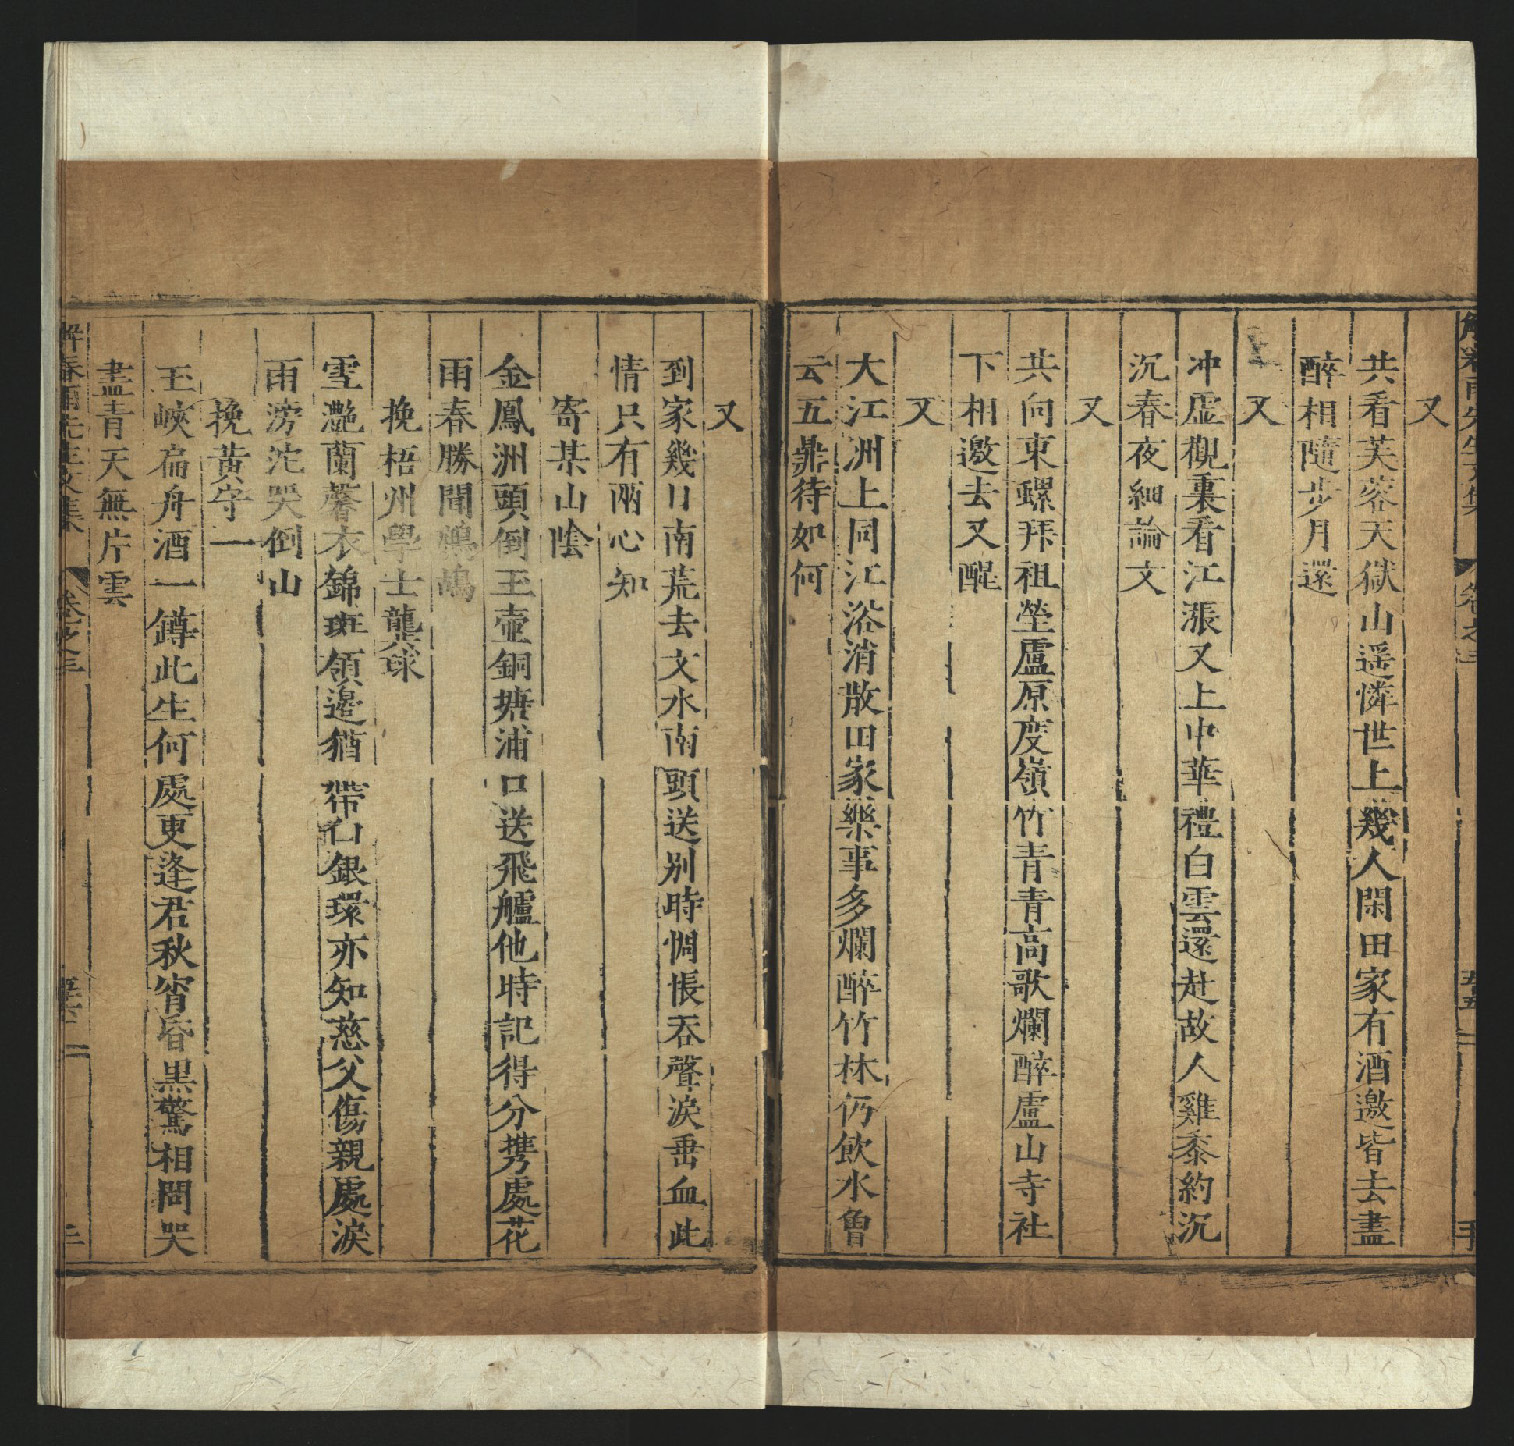 又
共看芙蓉天嶽山遥憐世上幾人閑田家有酒邀皆去盡
醉相隨步月還
又
冲虚觀裏看江漲又上中華禮白雲還赴故人雞黍約沉
沉春夜細論文
又
共向東螺拜祖塋盧原度嶺竹青青高歌爛醉盧山寺社
下相邀去又醒
又
大江洲上同江浴消散田家藥事多爛醉竹林仍飲水魯
云五鼎待如何
又
到家幾日南荒去文水南頭送别時惆悵吞聲淚垂血此
情只有兩心知
寄某山陰
金鳳洲頭倒玉壷銅塘浦口送飛艫他時記得分携處花
雨春勝聞鷓鴣
挽梧州學士龔
雪灔蘭馨衣錦斑領邊猶帶白銀環亦知慈父傷親處淚
雨滂沱哭倒山
挽黄守一
玉峽扁舟酒一鐏此生何處更逢君秋宵昏黒驚相問哭
盡青天無片雲
解春雨先生文集
卷之三